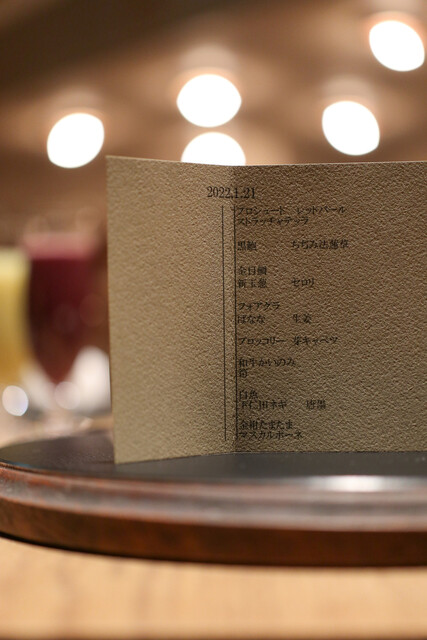 2022.1.21
プロシュート レッドパール
ストラッチャテッラ
黒鮑 ちぢみ法蓮草
金目鯛
新玉葱 セロリ
フォアグラ
ばなな 生姜
ブロッコリー 芽キャベツ
和牛かいのみ
白魚
下仁田ネギ 唐墨
金柑たまたま
マスカルポーネ